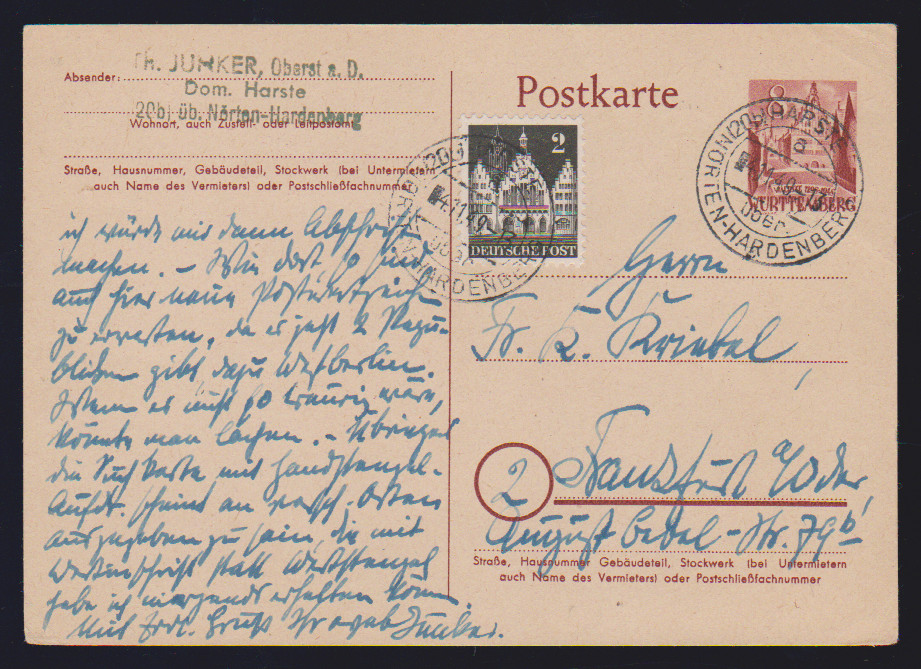 Th. JUNKER, Oberst a. D.
Absender:
Dom. Harste
20b) üb. Nörten-Hardenberg
Wohnort, auch Zustell- oder Leitpostamt
Straße, Hausnummer, Gebäudeteil, Stockwerk (bei Untermietern
auch Name des Vermieters) oder Postschließfachnummer
Postkarte
2
DEUTSCHE POST
8
WÜRTTEMBERG
(20b) HARSTE
ÜBER
NÖRTEN-HARDENBERG
ich würde mir dann Abschrift
machen. – Wie dort so sind
auch hier neue Postwertzeichen
zu erwarten, da es jetzt 2 Repu-
bliken gibt dazu Westberlin.
Wenn es nicht so traurig wäre,
könnte man lachen. – Übrigens
die Suchkarte mit Handstempel-
Aufdr. scheint an versch. Orten
ausgegeben zu sein, die mit
statt
habe ich nirgends erhalten können.
Mit frdl. Gruß Ihr ergeb. Junker.
Herrn
Fr. K. Kriebel
2 Frankfurt Oder
August Bebel-Str. 79b
Straße, Hausnummer Gebäudeteil, Stockwerk (bei Untermietern
auch Name des Vermieters) oder Postschließfachnummer